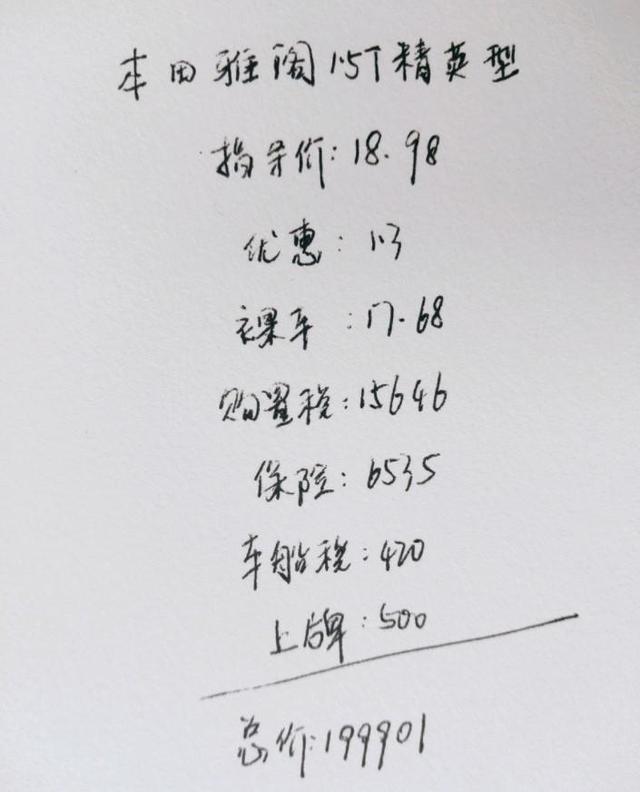 本田雅阁1.5T精英型
指导价:18.98
优惠:1.3
裸车:17.68
购置税:15646
保险:6535
车船税:420
上牌:500
总价:199901